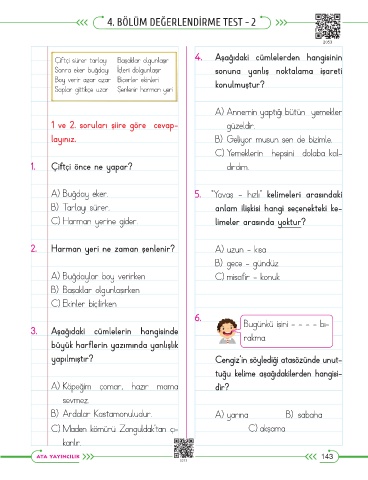 4. BÖLÜM DEĞERLENDİRME TEST - 2
Çiftçi sürer tarlayı
Sonra eker buğday
Boy verir azar azar
Saplar gittikçe uzar
Başaklar olgunlaşır
İçleri dolgunlaşır
Biçerler ekinleri
Şenlenir harman yeri
1 ve 2. soruları şiire göre cevap-
layınız.
1. Çiftçi önce ne yapar?
A) Buğday eker.
B) Tarlayı sürer.
C) Harman yerine gider.
2. Harman yeri ne zaman şenlenir?
A) Buğdaylar boy verirken
B) Başaklar olgunlaşırken
C) Ekinler biçilirken
3. Aşağıdaki cümlelerin hangisinde
büyük harflerin yazımında yanlışlık
yapılmıştır?
A) Köpeğim çomar, hazır mama
sevmez.
B) Ardalar Kastamonuludur.
C) Maden kömürü Zonguldak'tan çı-
karılır.
4. Aşağıdaki cümlelerden hangisinin
sonuna yanlış noktalama işareti
konulmuştur?
A) Annemin yaptığı bütün yemekler
güzeldir.
B) Geliyor musun sen de bizimle.
C) Yemeklerin hepsini dolaba kal-
dırdım.
5. "Yavaş - hızlı" kelimeleri arasındaki
anlam ilişkisi hangi seçenekteki ke-
limeler arasında yoktur?
A) uzun - kısa
B) gece - gündüz
C) misafir - konuk
6.
Bugünkü işini - - - - bı-
rakma
Cengiz'in söylediği atasözünde unut-
tuğu kelime aşağıdakilerden hangisi-
dir?
A) yarına B) sabaha
C) akşama
ATA YAYINCILIK
143